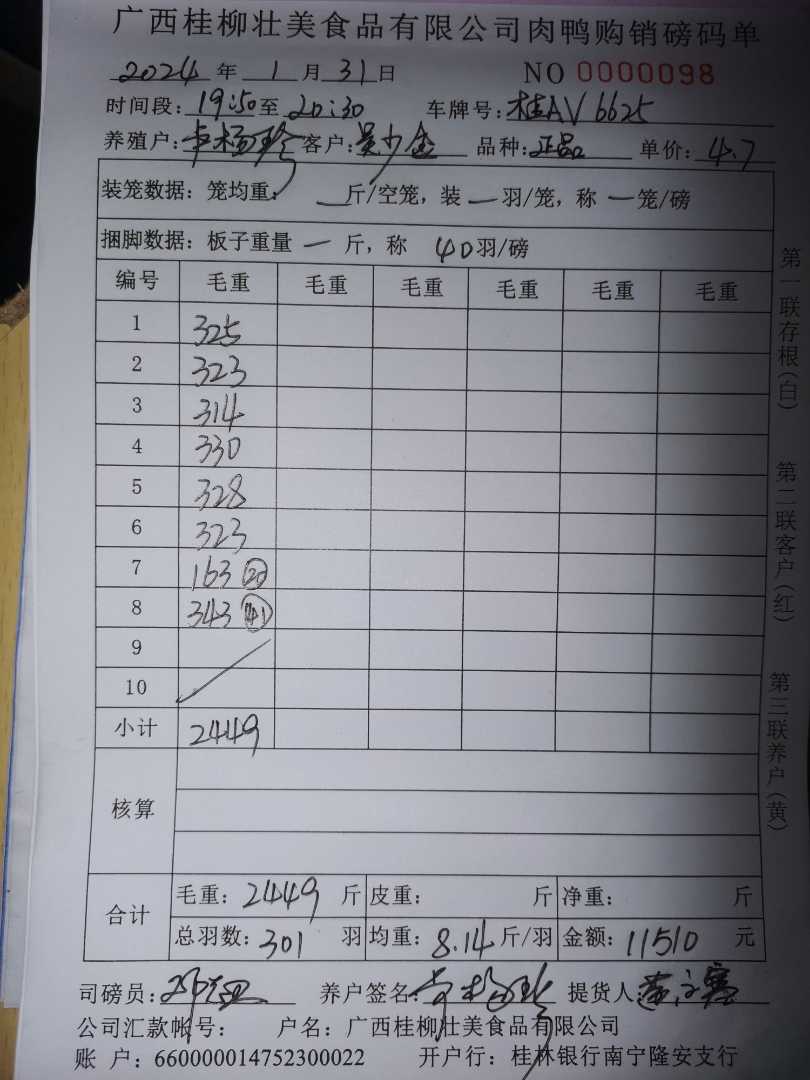 广西桂柳壮美食品有限公司肉鸭购销磅码单
2024年 1月31日 NO 0000098
时间段:19:50至20:30 车牌号:桂AV6625
养殖户: 客户:吴少金 品种:正品 单价:4.7
装笼数据:笼均重:一斤/空笼,装一羽/笼,称一笼/磅
捆脚数据:板子重量一斤,称 40羽/磅
编号 毛重 毛重 毛重 毛重 毛重 毛重
1 325
2 323
3 314
4 330
5 328
6 323
7 163 (20)
8 343 (41)
9
10
小计 2449
核算
合计 毛重:2449斤 皮重: 斤 净重: 斤
总羽数:301 羽 均重:8.14斤/羽 金额:11510 元
司磅员: 养户签名: 提货人:
公司汇款帐号: 户名:广西桂柳壮美食品有限公司
账 户:660000014752300022 开户行:桂林银行南宁隆安支行
第一联存根(白)
第二联客户(红)
第三联养户(黄)